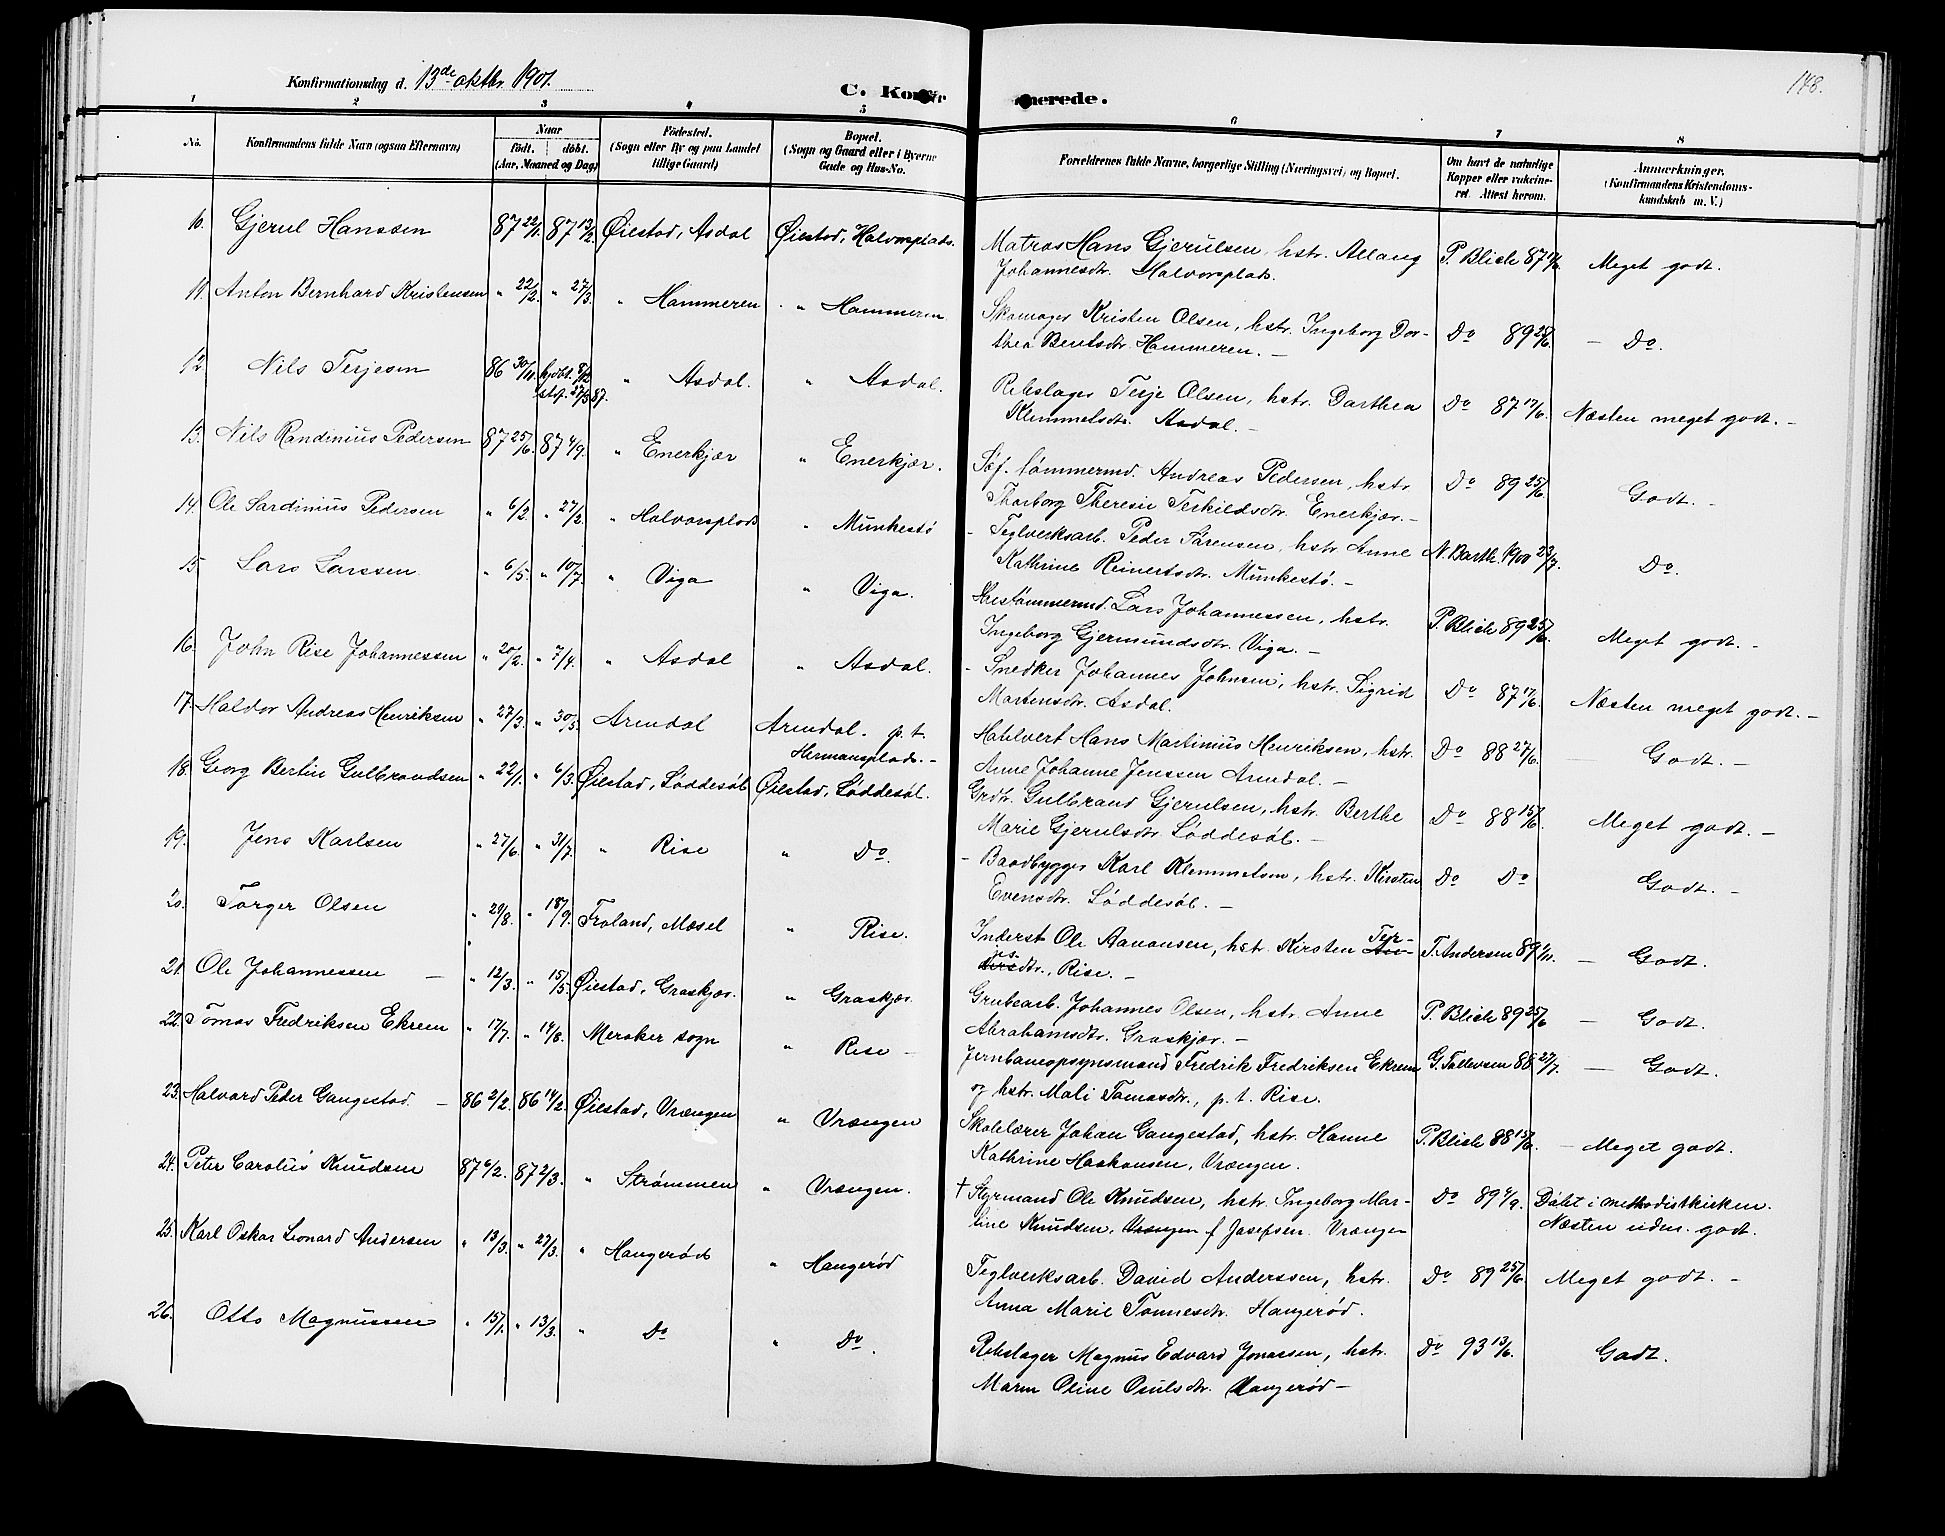 Konfirmationsdag d. 13de oktbr. 1901.
C. Konfir merede.
148.
1 2 3 4 5 6 7 8
No. Konfirmandens fulde Navn (ogsaa Efternavn)
Naar
født. døbt.
(Aar, Maaned og Dag)
Fødested.
(Sogn eller By og paa Landet
tillige Gaard)
Bopæl.
(Sogn og Gaard eller i Byerne
Gade og Hus-No.
Forældrenes fulde Navne, borgerlige Stilling (Næringsvei) og Bopæl.
Om havt de naturlige
Kopper eller vakcine-
ret. Attest herom.
Anmærkninger.
(Konfirmandens Kristendoms-
kundskab m. V.)
10. Gjerul Hanssen 87 22/1. 87 13/2. Øiestad, Asdal Øiestad, Halvorsplads. Matros Hans Gjerulsen, hstr. Allaug P. Blich 87 17/6 Meget godt.
Johannesdtr. Halvorsplads.
11. Anton Bernhard Kristensen " 22/2. " 27/3. " Hammeren " Hammeren. Skomager Kristen Olsen, hstr. Ingeborg Dor- Do 89 25/6. - Do.
thea Berntsdtr. Hammeren. -
12. Nils Terjesen 86 30/11. hjdbt. 8/12 " Asdal. " Asdal. Rebslager Terje Olsen, hstr. Darthea Do 87 17/6. Næsten meget godt. -
stf. 27/3 87. Klemmetsdtr. Asdal. -
13. Nils Randinius Pedersen 87 25/6. 87 4/9. " Enerkjær " Enerkjær. Sæf. tømmermd. Andreas Pedersen, hstr. Do 89 25/6. Godt. -
Thorborg Theresie Terkildsdtr. Enerkjær. -
14. Ole Sardinius Pedersen " 6/2. " 27/2. " Halvorsplads " Munkestø - Teglverksarb. Peder Sørensen, hstr. Anne N. Barth. 1900 23/7. Do.
Kathrine Reinertsdtr. Munkestø. -
15. Lars Larssen " 6/5. " 10/7. " Viga " Viga. Lars Johannessen, hstr. P. Blich 89 25/6. Meget godt. -
Ingeborg Gjermundsdtr. Viga. -
16. John Rise Johannessen " 20/2. " 7/4. " Asdal " Asdal. - Snedker Johannes Johnsen, hstr. Sigrid Do 87 17/6. Næsten meget godt. -
Martensdtr. Asdal.
17. Haldor Andreas Henriksen " 27/3. " 30/5. Arendal Arendal. p. t. Hotelvert Hans Martinius Henriksen, hstr. Do 88 27/6. Godt. -
Hermansplads. - Anne Johanne Jenssen Arendal. -
18. Georg Bertin Gulbrandsen " 22/1. " 6/3. Øiestad, Løddesøl Øiestad, Løddesøl. Grdr. Gulbrand Gjerulsen, hstr. Berthe Do 88 15/6. Meget godt. -
Marie Gjerulsdtr. Løddesøl. -
19. Jens Karlsen " 27/6. " 31/7. " Rise " Do. - Baadbygger Karl Klemmetsen, hstr. Kirsten Do Do Godt. -
Evensdtr. Løddesøl. -
20. Torger Olsen " 29/8. " 18/9. Froland, Mæsel " Rise. Inderst Ole Aanonsen, hstr. Kirsten Ter- T. Andersen 89 1/11. - Godt.
jesdtr., Rise. -
21. Ole Johannessen - " 12/3. " 15/5. Øiestad, Graskjær. " Graskjær. Grubearb. Johannes Olsen, hstr. Anne P. Blich 89 25/6 - Godt.
Abrahamsdtr. Graskjær. -
22. Tomas Fredriksen Ekrem " 17/7. " 14/8. Meraker sogn " Rise - Jernbaneopsynsmand Fredrik Fredriksen Ekrem G. Tallevsen 88 27/7. - Godt.
og hstr. Mali Tomasdtr., p. t. Rise.
23. Halvard Peder Gangestad. - 86 2/2. 86 14/2. Øiestad, Vrængen " Vrængen Skolelærer Johan Gangestad, hstr. Hanne P. Blich 88 15/6. - Meget godt.
Kathrine Haakonsen, Vrængen.
24. Peter Carolius Knudsen 87 6/2. 87 2/3. " Strømmen " Vrængen. † Styrmand Ole Knudsen, hstr. Ingeborg Mar- Do 89 4/9. Døbt i methodistkirken.
tine Knudsen, Vrængen f. Josefsen. Vrængen Næsten uden. godt.
25. Karl Oskar Leonard Andersen " 13/3. " 27/3. " Haugerød " Haugerød Teglverksarb. David Anderssen, hstr. Do 89 25/6. Meget godt. -
Anna Marie Tønnesdtr. Haugerød.
26. Otto Magnussen " 15/1. " 13/3. " Do " Do. Rebslager Magnus Edvard Jonassen, hstr. Do 93 13/6. Godt.
Maren Oline Osulsdtr. Haugerød -